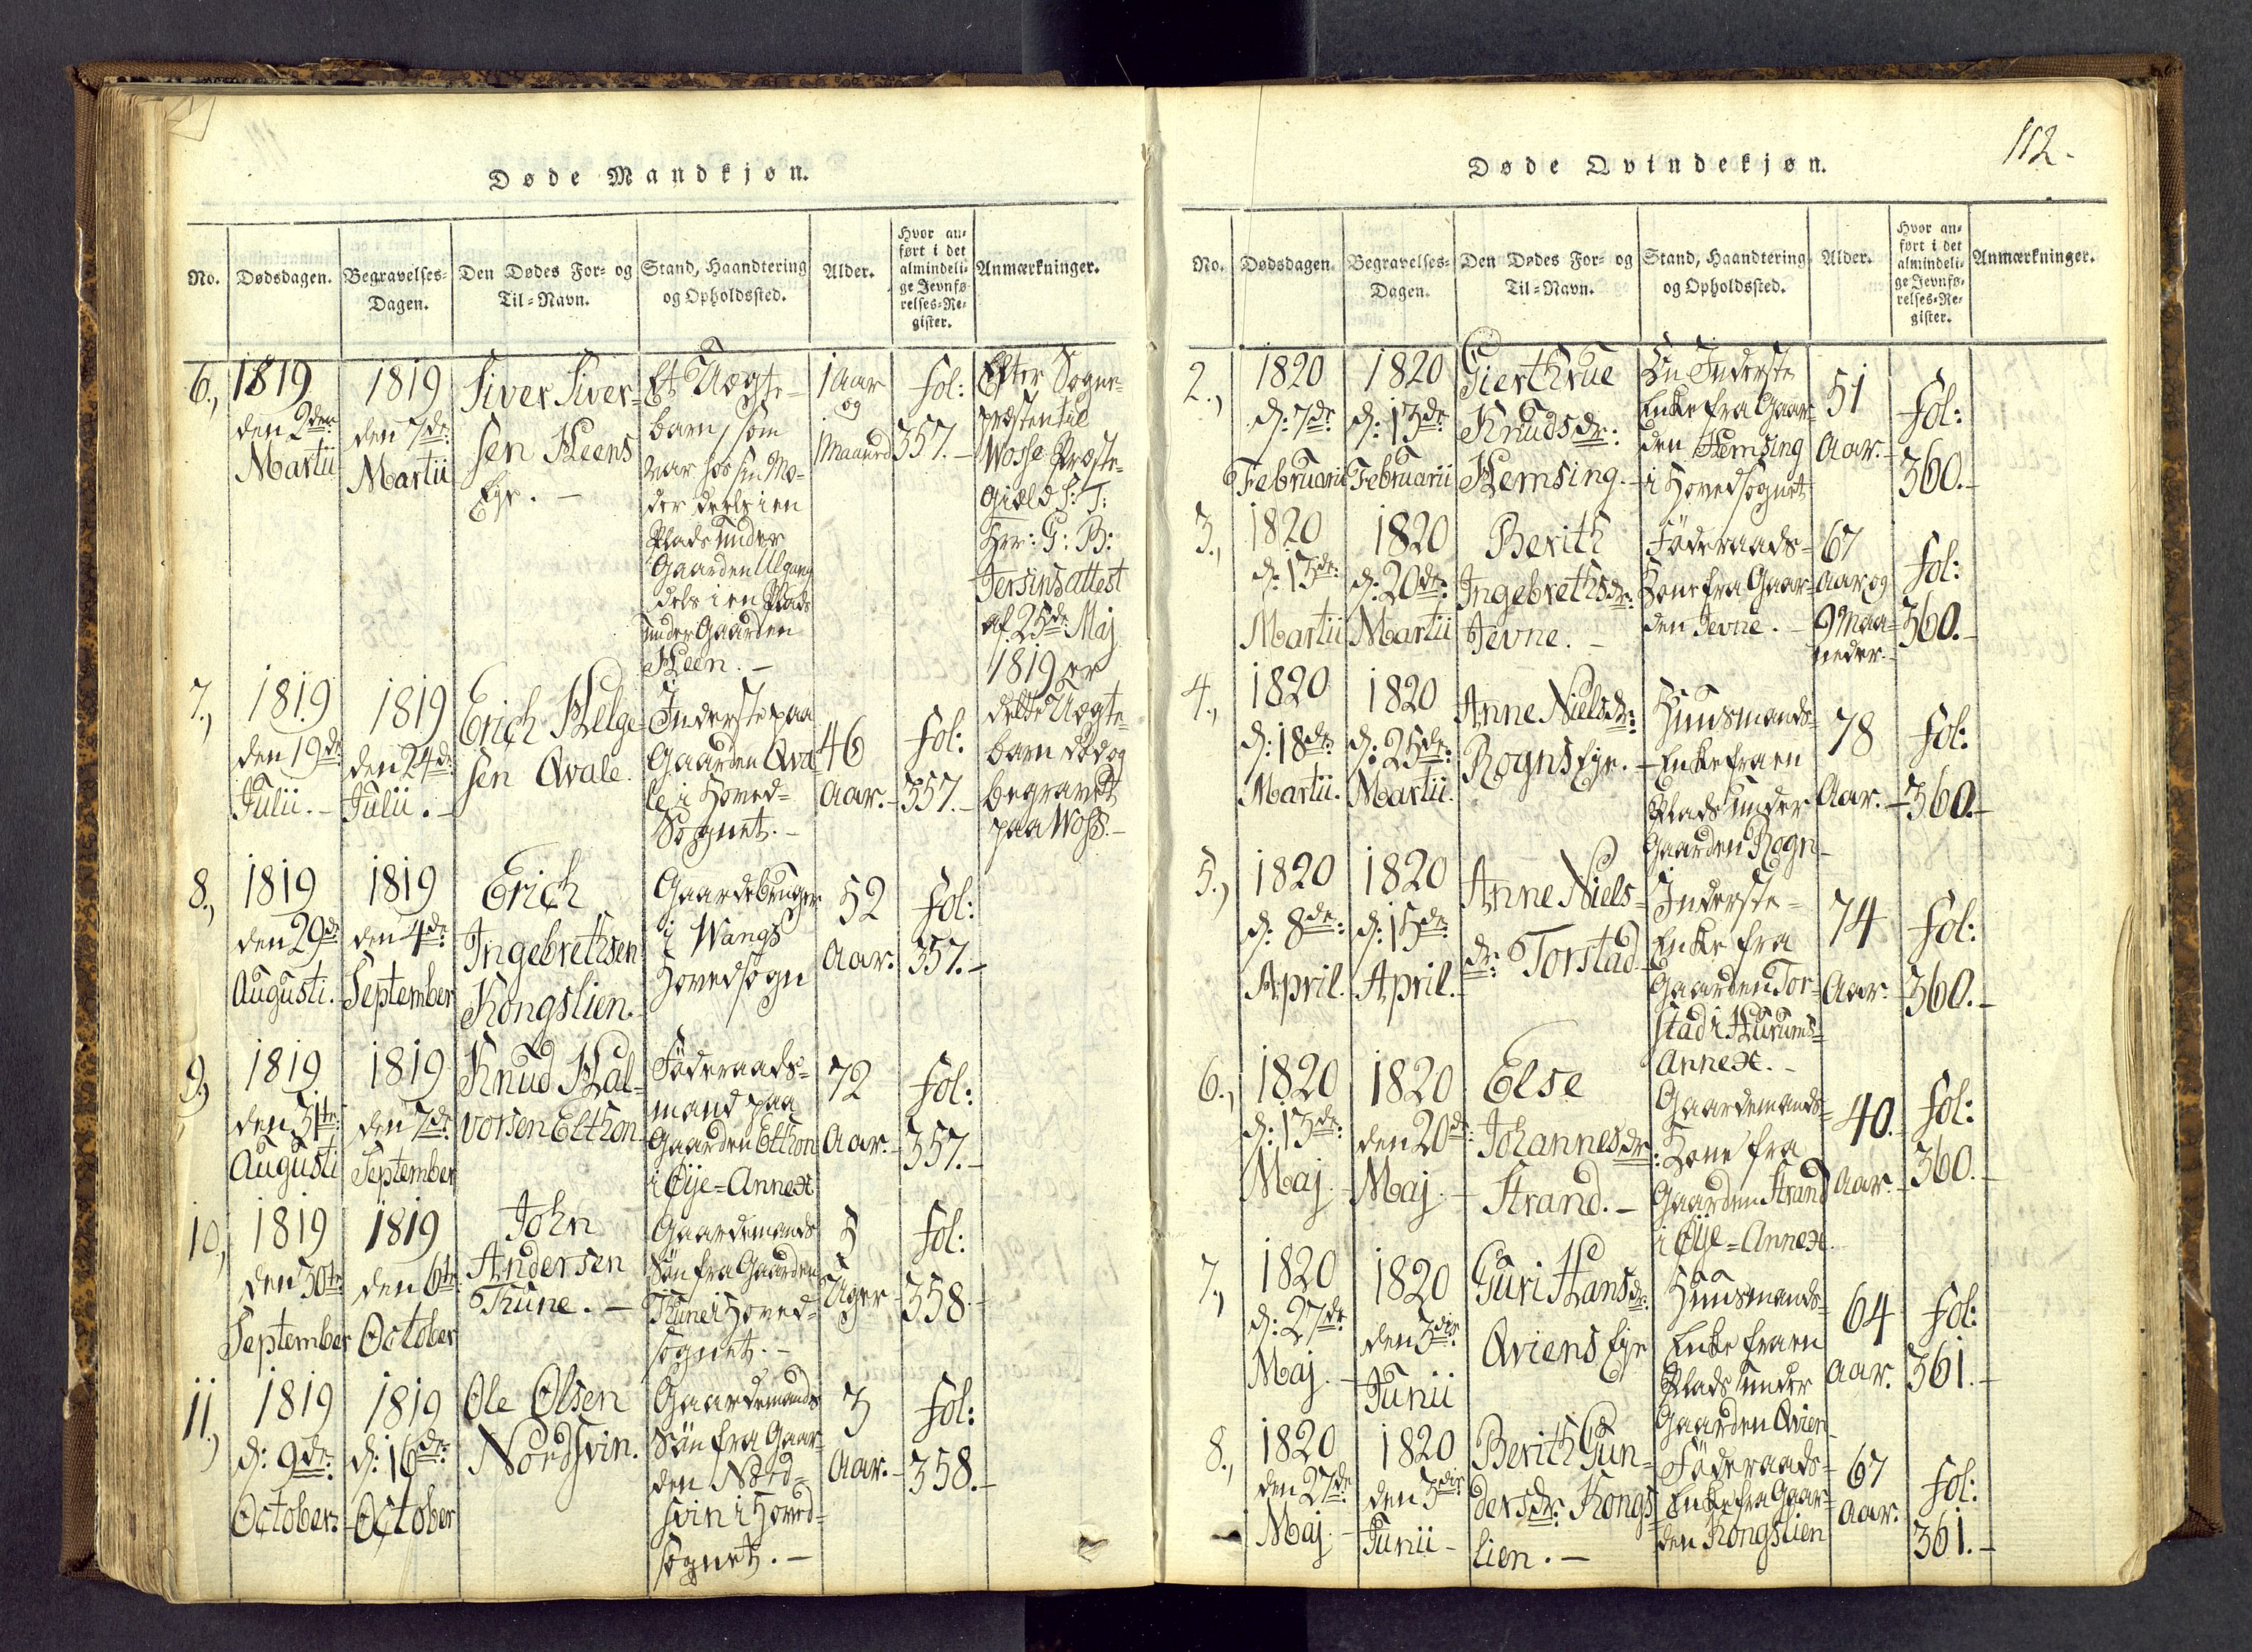 Døde Mandkjøn.
No.
Dødsdagen.
Begravelses-
Dagen.
Den Dødes For- og
Til-Navn.
Stand, Haandtering
og Opholdssted.
Alder.
Hvor an-
ført i det
almindeli-
ge Jevnfø-
relses-Re-
gister.
Anmærkninger.
6.,
1819
den 2den
Martii
1819
den 7de
Martii
Siver Siver-
sen Heens
Eye. -
Et Uægte-
barn, som
var hos sin Mo-
der deels i en
Plads under
Gaarden
dels i en Plads
under Gaarden
Heen. -
1 Aar
og
1 Maaned
fol:
357. -
Efter Sogne-
præsten til
Wosse Præste-
Giæld S: T:
Herr: G: B:
Jersins attest
af 25de Maj
1819 er
dette Uægte-
barn død og
begravet
paa Woss. -
7.,
1819
den 19de
Julii. -
1819
den 24de
Julii. -
Erich Helge-
sen Qvale.
Inderste paa
Gaarden Qva-
le i Hoved-
Sognet. -
46
Aar. -
fol:
357. -
8.,
1819
den 29de
Augusti.
1819
den 4de
September
Erich
Ingebrethsen
Kongslien.
Gaardebruger
i Wangs
Hovedsogn
52
Aar.
fol:
357. -
9.,
1819
den 31te
Augusti
1819
den 7de
September
Knud Hal-
vorsen Elthon
Föderaads-
mand paa
Gaarden Elthon
i Øÿe-Annex
72
Aar. -
fol:
357. -
10.,
1819
den 30te
September
1819
den 6te
October
John
Andersen
Thune. -
Gaardemands
Sön fra Gaarden
Thune i Hoved-
sognet. -
5
Uger
fol:
358. -
11.,
1819
d: 9de
October.
1819
d: 16de
October
Ole Olsen
Nordsvin.
Gaardemands
Sön fra Gaar-
den Nord-
svin i Hoved-
sognet. -
3
Aar. -
fol:
358. -
112.
Døde Qvindekjøn.
No.
Dødsdagen.
Begravelses-
Dagen.
Den Dødes For- og
Til-Navn.
Stand, Haandtering
og Opholdssted.
Alder.
Hvor an-
ført i det
almindeli-
ge Jevnfø-
relses-Re-
gister.
Anmærkninger.
2.,
1820
d: 7de
Februarii
1820
d: 13de
Februarii
Gierthrue
Knudsdr:
Hemsing. -
En Inderste
Enke fra Gaar-
den Hemsing
i Hovedsognet
51
Aar. -
fol:
360. -
3.,
1820
d: 13de
Martii
1820
d: 20de
Martii
Berith
Ingebrethsdr:
Jevne. -
Föderaads-
Kone fra Gaar-
den Jevne. -
67
Aar og
9 Maa-
neder. -
fol:
360. -
4.,
1820
d: 18de
Martii.
1820
d: 25de
Martii.
Anne Nielsdr:
Rogns Eye. -
Huusmands-
Enke fra en
Plads under
Gaarden Rogn -
78
Aar. -
fol:
360. -
5.,
1820
d: 8de
April.
1820
d: 15de
April. -
Anne Niels-
dr: Torstad
Inderste-
Enke fra
Gaarden Tor-
stad i Hurums-
Annex. -
74
Aar. -
fol:
360. -
6.,
1820
d: 13de
Maj. -
1820
den 20de
Maj. -
Else
Johannesdr:
Strand. -
Gaardemands-
Kone fra
Gaarden Strand
i Øÿe-Annex.
40.
Aar. -
fol:
360. -
7.,
1820
d: 27de
Maj. -
1820
den 3die
Junii
Guri Hansdr:
Qviens Eye
Huusmands-
Enke fra en
Plads under
Gaarden Qvien
64
Aar.
fol:
361. -
8.,
1820
den 27de
Maj. -
1820
den 3die
Junii -
Berith Gun-
dersdr: Kongs-
lien. -
Föderaads-
Enke fra Gaar-
den Kongslien
67
Aar.
fol:
361. -